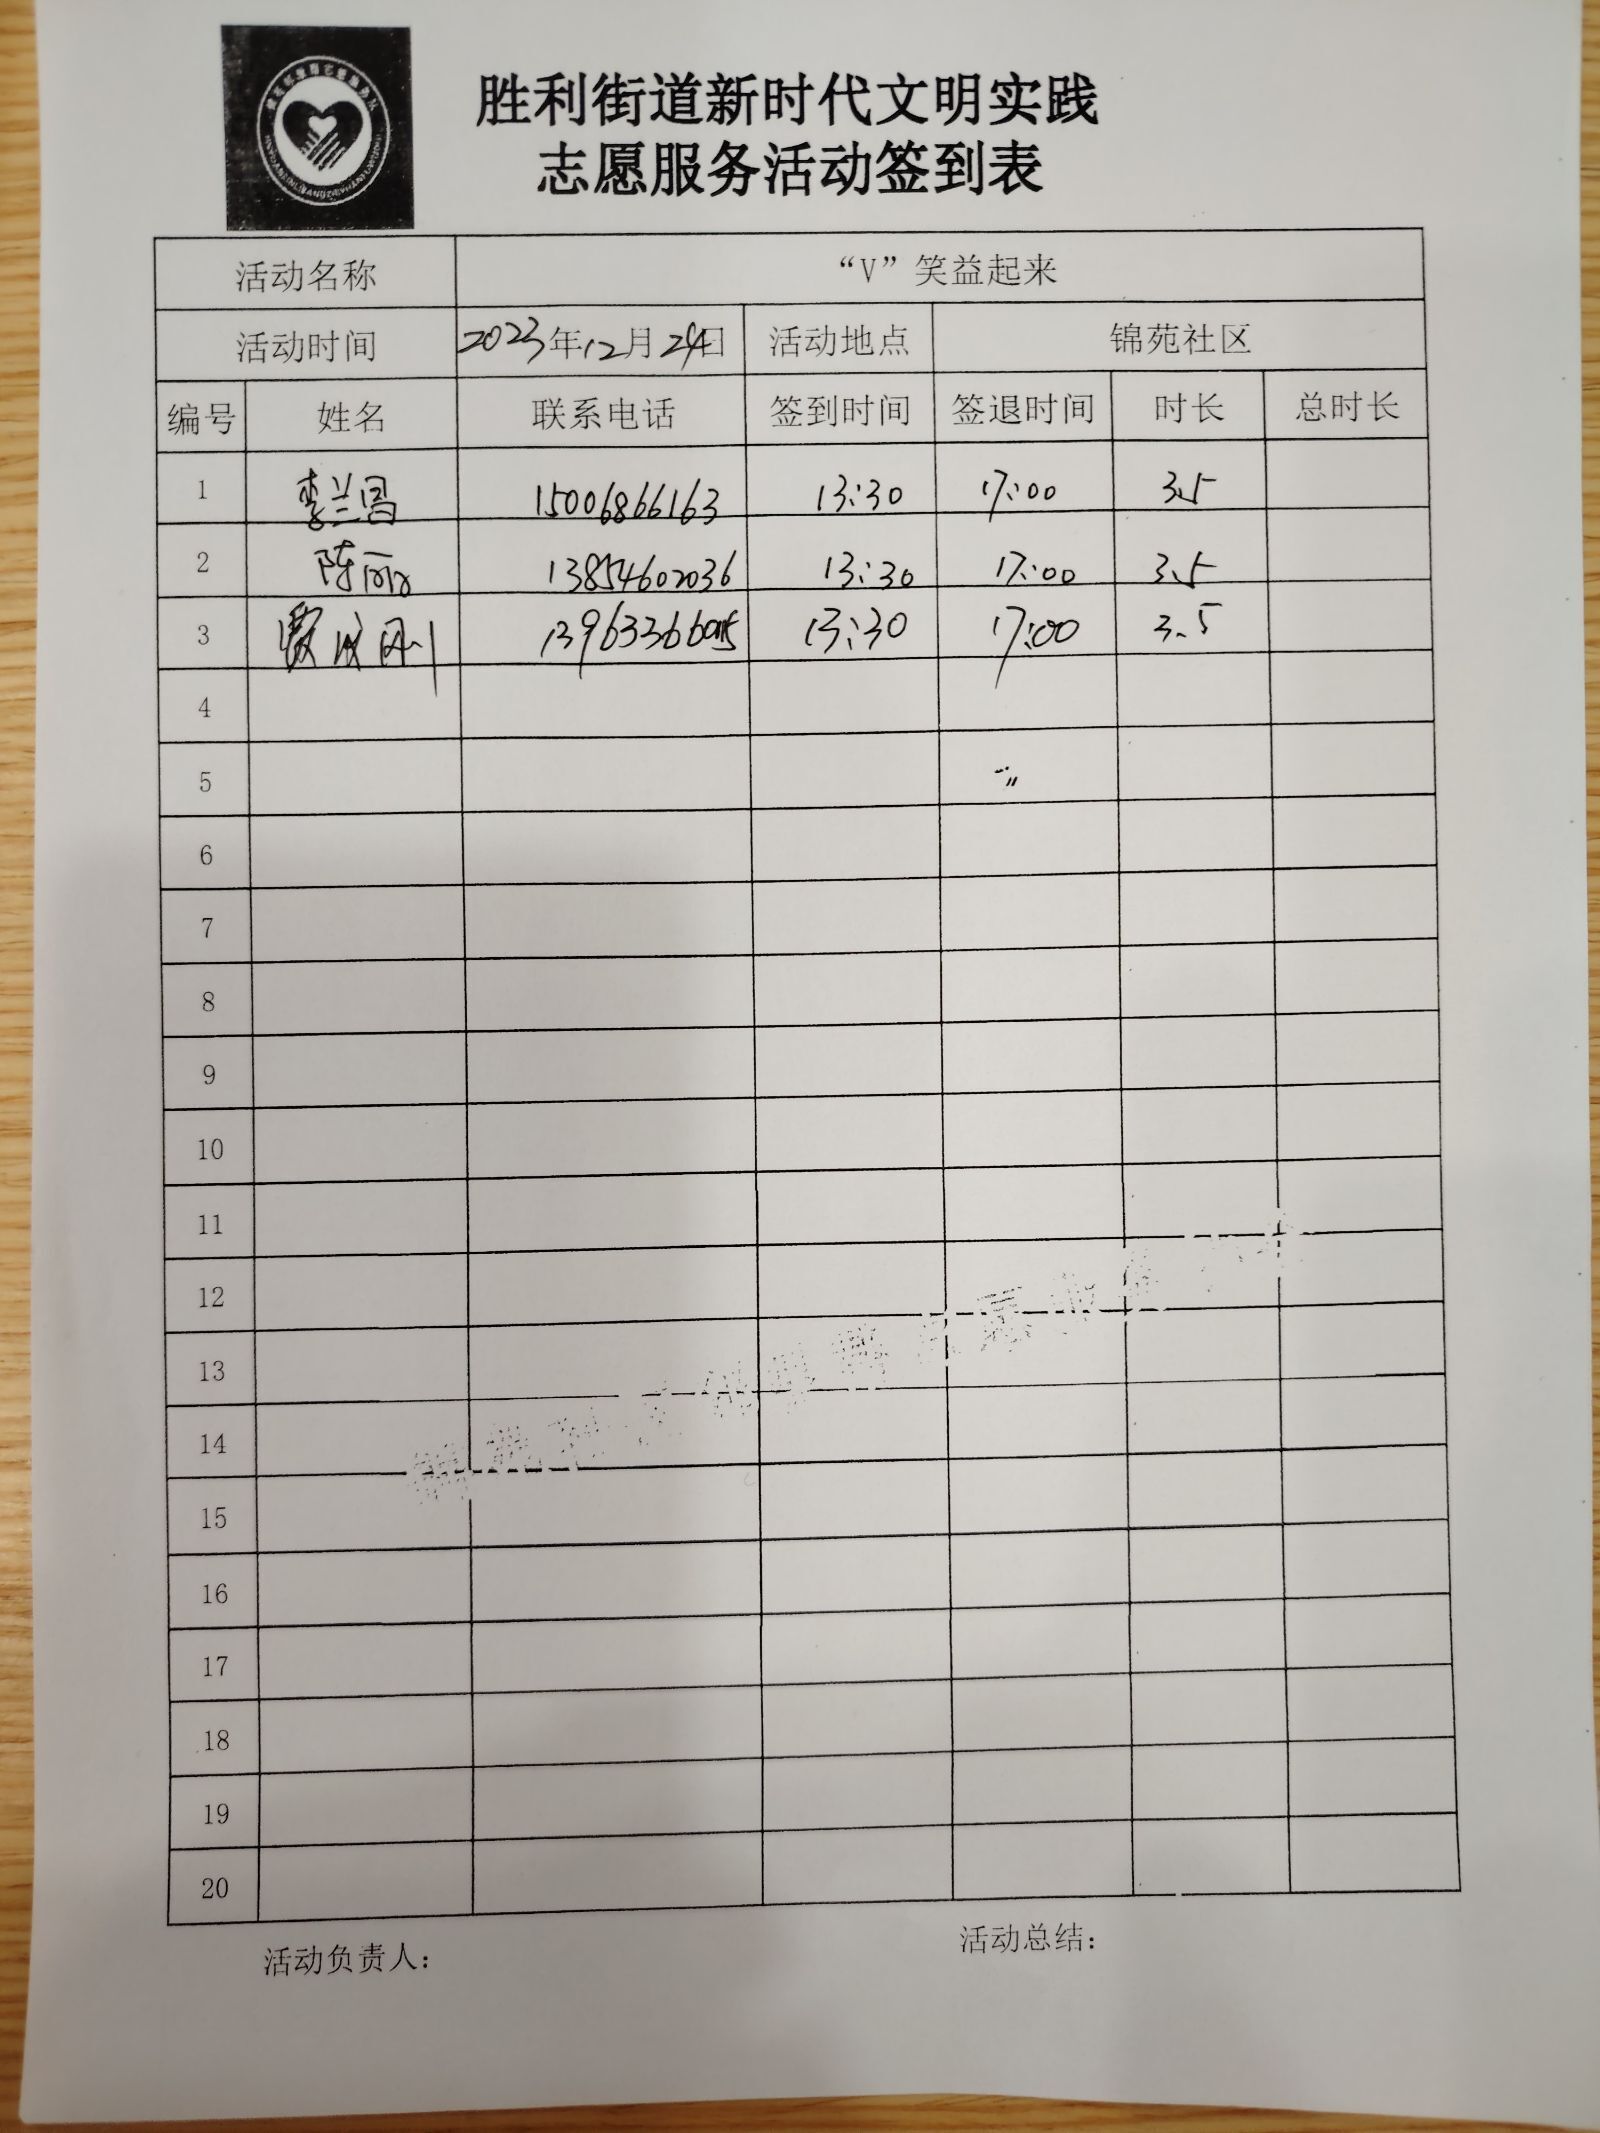 胜利街道新时代文明实践
志愿服务活动签到表
活动名称 “V”笑益起来
活动时间 2023年12月24日 活动地点 锦苑社区
编号 姓名 联系电话 签到时间 签退时间 时长 总时长
1 李兰昌 15006866163 13:30 17:00 3.5
2 陈丽 13854602036 13:30 17:00 3.5
3 成刚 13:30 17:00 3.5
4
5
6
7
8
9
10
11
12
13
14
15
16
17
18
19
20
活动负责人： 活动总结：